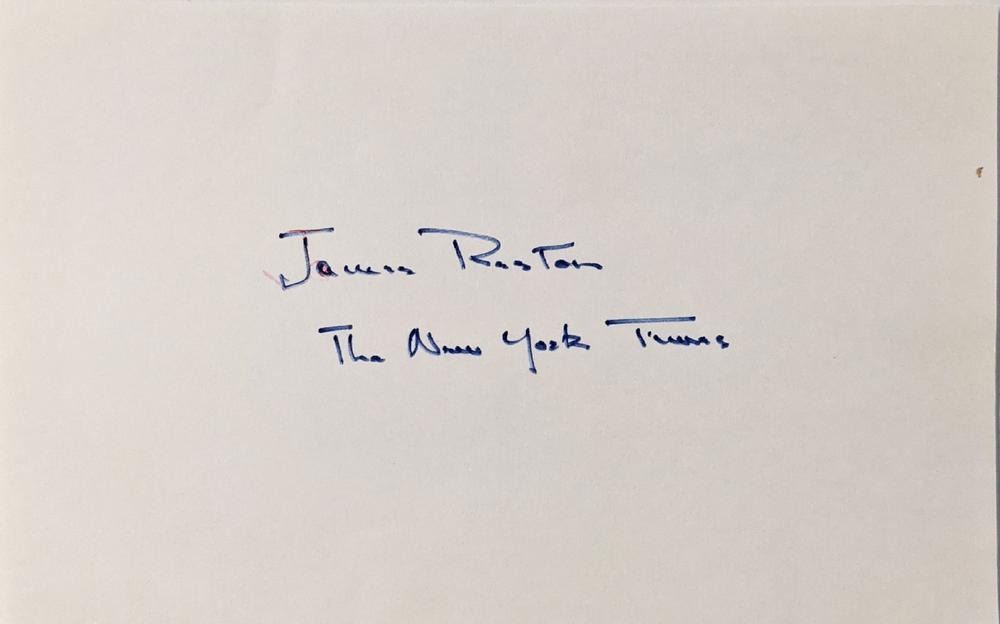 James Reston
The New York Times